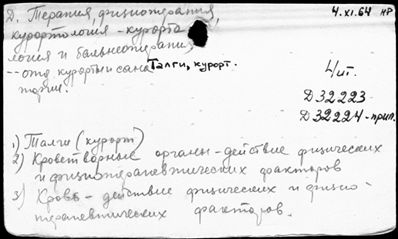 Д. Терапия, физиотерапия,
4.XI.64 НР
курортология - курорто
логия и бальнеотерапия
-- отд. курорты и сана
Талги, курорт.
тории.
4/ит.
Д32223
Д32224-прил.
1) Талги (курорт)
2) Кроветворные органы - действие физических
и физиотерапевтических факторов
3) Кровь - действие физических и физио-
терапевтических факторов.